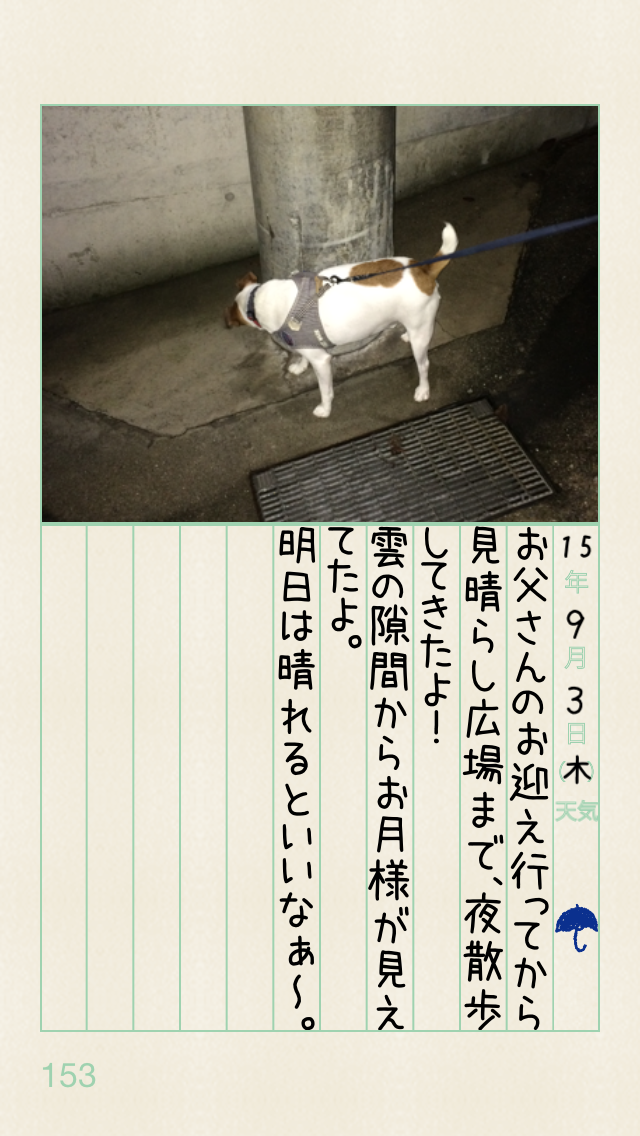 15年9月3日(木)天気
お父さんのお迎え行ってから
見晴らし広場まで、夜散歩
してきたよ！
雲の隙間からお月様が見え
てたよ。
明日は晴れるといいなぁ〜。
153